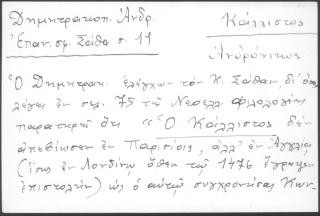 Δημητρακοπ. Ἀνδρ.
Ἐπαν. σφ. Σάθα σ. 11
Κάλλιστος
Ἀνδρόνικος
Ὁ Δημητρακ. ἐλέγχων τὸν Κ. Σάθαν δι' ὅσα
λέγει ἐν σελ. 75 τῆς Νεοελλ. φιλολογίας
παρατηρεῖ ὅτι "Ὁ Κάλλιστος δὲν
ἀπεβίωσεν ἐν Παρισίοις, ἀλλ' ἐν Ἀγγλίᾳ
(ἴσως ἐν Λονδίνῳ ὅθεν τῷ 1476 ἔγραψεν
ἐπιστολὴν) ὡς ὁ αὐτοῦ συγχρονήσας Κων.